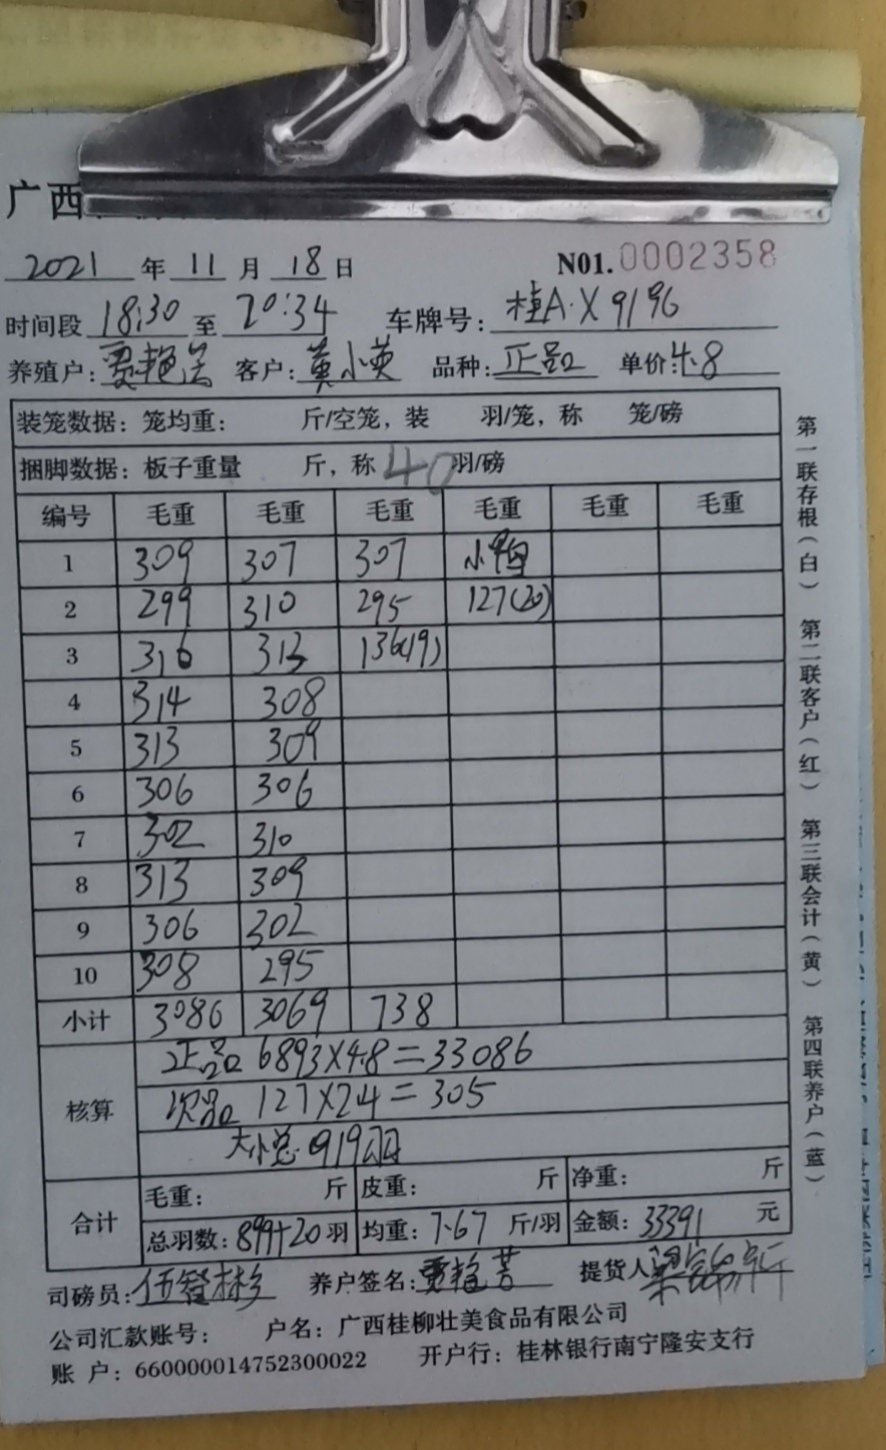 广西
2021年11月18日 N01.0002358
时间段18:30至20:34 车牌号:桂A·X9196
养殖户:贾艳芸 客户:黄小英 品种:正品 单价:4.8
装笼数据:笼均重: 斤/空笼,装 羽/笼,称 笼/磅
捆脚数据:板子重量 斤,称40羽/磅
编号 毛重 毛重 毛重 毛重 毛重 毛重
1 309 307 307 小鸭
2 299 310 295 127(20)
3 316 313 136(19)
4 314 308
5 313 309
6 306 306
7 302 310
8 313 309
9 306 302
10 308 295
小计 3086 3069 738
核算
正品 6893×4.8=33086
次品 127×2.4=305
大小总 919羽
合计
毛重: 斤 皮重: 斤 净重: 斤
总羽数:899+20羽 均重:7.67斤/羽 金额:33391元
司磅员: 养户签名: 提货人
公司汇款账号: 户名:广西桂柳壮美食品有限公司
账 户:660000014752300022 开户行:桂林银行南宁隆安支行
第一联存根(白) 第二联客户(红) 第三联会计(黄) 第四联养户(蓝)